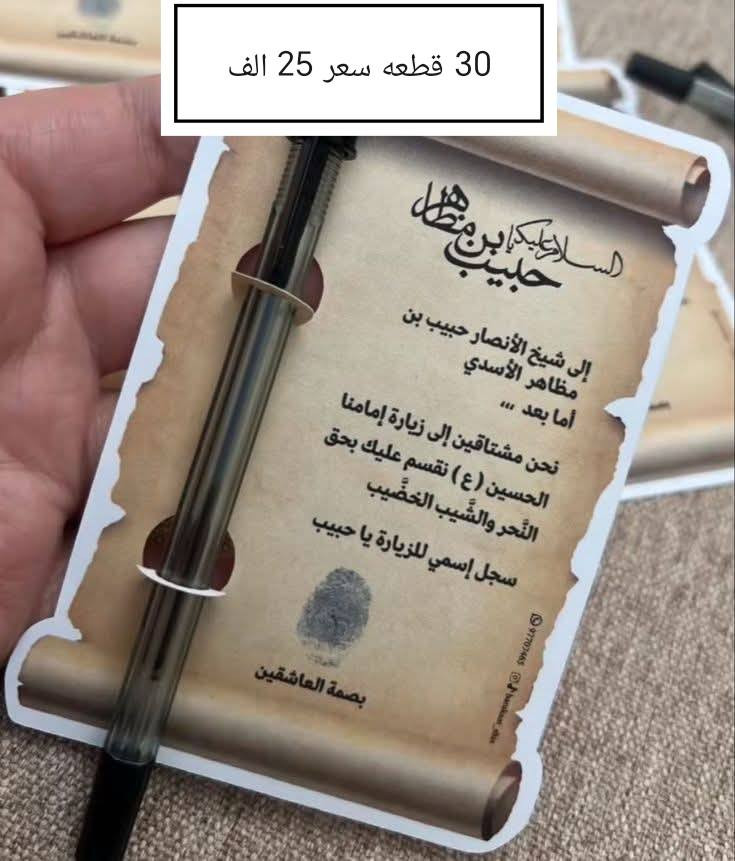 30 قطعه سعر 25 الف
السلام عليك يا
حبيب بن مظاهر
إلى شيخ الأنصار حبيب بن
مظاهر الأسدي
أما بعد ...
نحن مشتاقين إلى زيارة إمامنا
الحسين (ع) نقسم عليك بحق
النَّحر والشَّيب الخضَّيب
سجل إسمي للزيارة يا حبيب
بصمة العاشقين
97707465